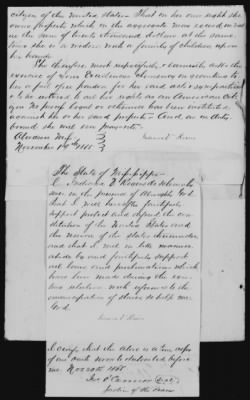 citizen of the United States. That in her own right she
owns property which in the aggregate may exceed in value
the sum of twenty thousand dollars at the same
time she is a widow with a family of children upon
her hands.
She therefore most respectfully & earnestly asks the
exercise of your Excellency clemency in according to
her a full & free pardon for her said acts & participation
& to be restored to all her rights as an American Citi-
zen. No proceedings legal or otherwise has been instituted
against her or her said property. And as in duty
bound she will ever pray etc.
Aberdeen Miss
November 1865
The State of Mississippi
I do solemnly
swear in the presence of Almighty God
that I will henceforth faithfully
support protect and defend the con-
stitution of the United States and
the union of the states thereunder
and that I will in like manner
abide by and faithfully support
all laws and proclamations which
have been made during the exis-
ting rebellion with reference to the
emancipation of slaves so help me
God.
I certify that the above is a true copy
of one oath sworn to & subscribed before
me. Nov 1865
Justice of the Peace